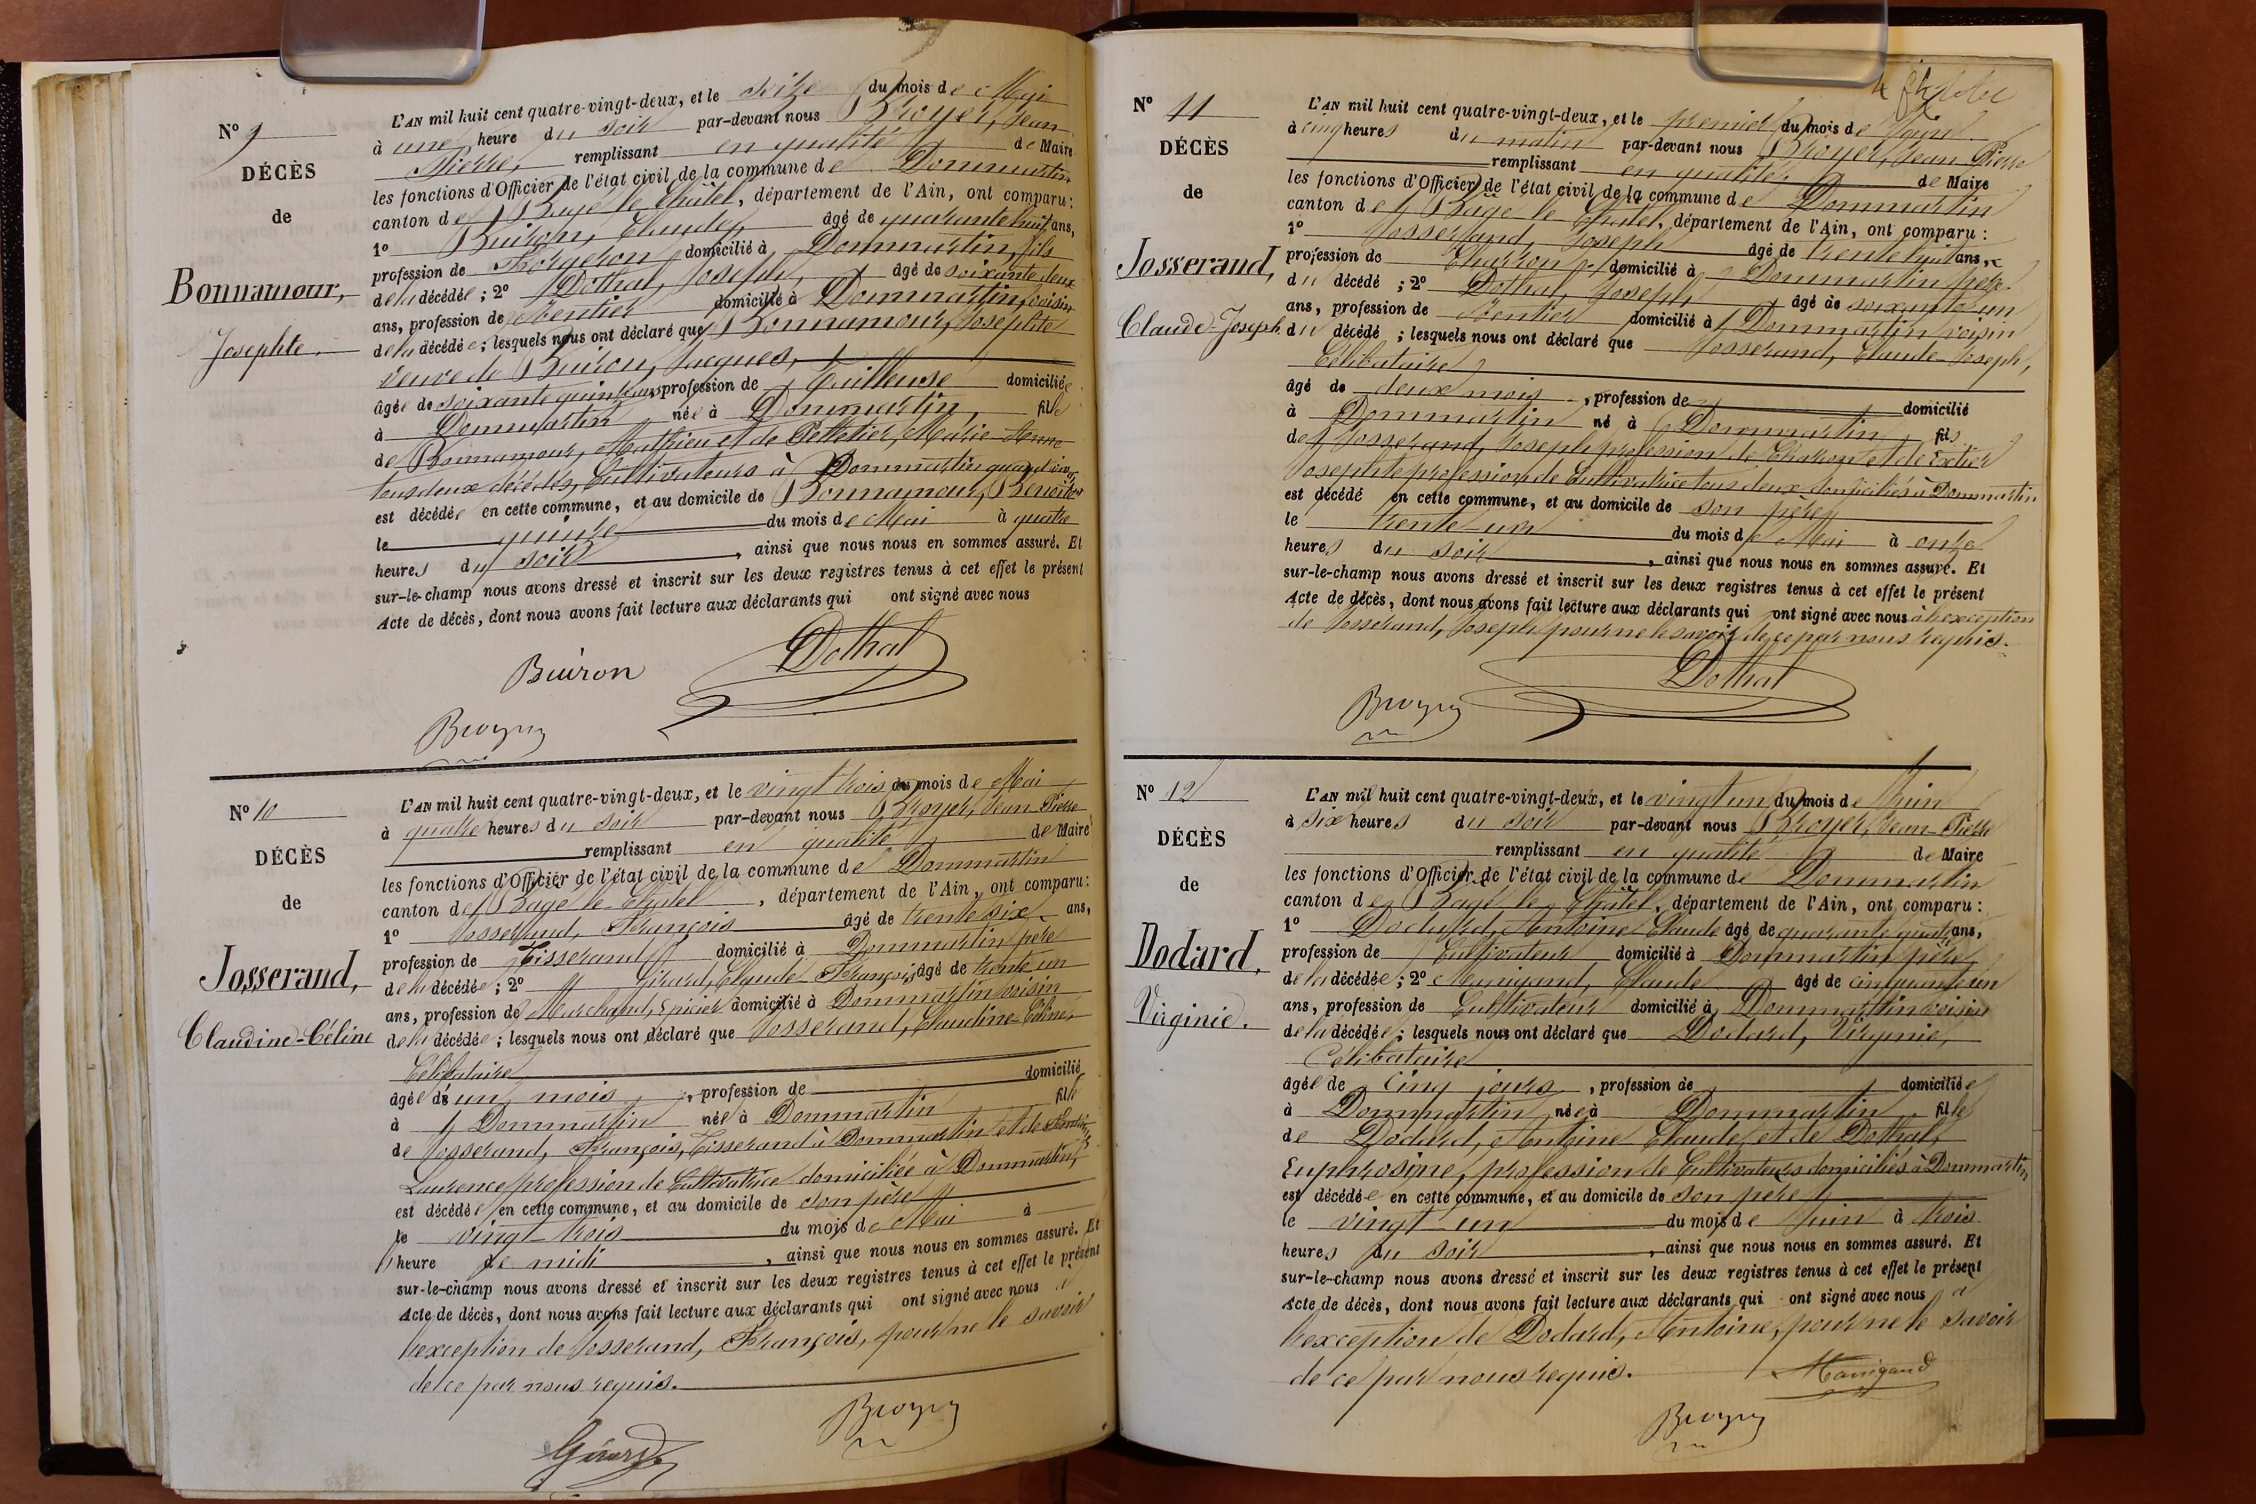 N° 9
DÉCÈS
de
Bonnamour,
Josephte.
L'AN mil huit cent quatre-vingt-deux, et le seize du mois de Mai
à une heure du soir par-devant nous Broyer, Jean
Pierre, remplissant en qualité de Maire
les fonctions d'Officier de l'état civil de la commune de Dommartin
canton de Bagé le Châtel, département de l'Ain, ont comparu :
1° Buiron, Claude, âgé de quarante huit ans,
profession de Forgeron domicilié à Dommartin, fils
de la décédée ; 2° Dothal, Joseph, âgé de soixante deux
ans, profession de Rentier domicilié à Dommartin, voisin
de la décédée ; lesquels nous ont déclaré que Bonnamour, Josephte
veuve de Buiron, Jacques,
âgée de soixante quinze ans, profession de Tailleuse domiciliée
à Dommartin née à Dommartin, fille
de Bonnamour, Mathieu et de Pelletier, Marie
tous deux décédés, Cultivateurs à Dommartin
est décédée en cette commune, et au domicile de Bonnamour, Benoit
le quinze du mois de Mai à quatre
heures du soir, ainsi que nous nous en sommes assuré. Et
sur-le-champ nous avons dressé et inscrit sur les deux registres tenus à cet effet le présent
Acte de décès, dont nous avons fait lecture aux déclarants qui ont signé avec nous
Buiron Dothal
Broyer
N° 10
DÉCÈS
de
Josserand,
Claudine-Céline
L'AN mil huit cent quatre-vingt-deux, et le vingt trois du mois de Mai
à quatre heures du soir par-devant nous Broyer, Jean Pierre
remplissant en qualité de Maire
les fonctions d'Officier de l'état civil de la commune de Dommartin
canton de Bagé le Châtel, département de l'Ain, ont comparu :
1° Josserand, François âgé de trente six ans,
profession de Tisserand domicilié à Dommartin père
de la décédée ; 2° Girard, Claude François, âgé de trente un
ans, profession de Marchand, Epicier domicilié à Dommartin voisin
de la décédée ; lesquels nous ont déclaré que Josserand, Claudine Céline,
Célibataire
âgée de un mois, profession de domicilié
à Dommartin née à Dommartin fille
de Josserand, François, Tisserand à Dommartin et de
Laurence profession de Cultivatrice domiciliée à Dommartin,
est décédée en cette commune, et au domicile de son père
le vingt trois du mois de Mai à
heure de midi, ainsi que nous nous en sommes assuré. Et
sur-le-champ nous avons dressé et inscrit sur les deux registres tenus à cet effet le présent
Acte de décès, dont nous avons fait lecture aux déclarants qui ont signé avec nous à
l'exception de Josserand, François, pour ne le savoir
de ce par nous requis.
Girard Broyer
N° 11
DÉCÈS
de
Josserand,
Claude-Joseph
L'AN mil huit cent quatre-vingt-deux, et le premier du mois de Juin
à cinq heures du matin par-devant nous Broyer, Jean Pierre
remplissant en qualité de Maire
les fonctions d'Officier de l'état civil de la commune de Dommartin
canton de Bâgé le Châtel, département de l'Ain, ont comparu :
1° Josserand, Joseph âgé de trente huit ans,
profession de Charron domicilié à Dommartin père
du décédé ; 2° Dothal Joseph âgé de soixante un
ans, profession de Rentier domicilié à Dommartin voisin
du décédé ; lesquels nous ont déclaré que Josserand, Claude Joseph,
Célibataire
âgé de deux mois, profession de domicilié
à Dommartin né à Dommartin fils
de Josserand, Joseph profession de Charron et de Extier
Josephte profession de Cultivatrice tous deux domiciliés à Dommartin
est décédé en cette commune, et au domicile de son père
le trente un du mois de Mai à onze
heures du soir, ainsi que nous nous en sommes assuré. Et
sur-le-champ nous avons dressé et inscrit sur les deux registres tenus à cet effet le présent
Acte de décès, dont nous avons fait lecture aux déclarants qui ont signé avec nous à l'exception
de Josserand, Joseph pour ne le savoir de ce par nous requis.
Dothal
Broyer
N° 12
DÉCÈS
de
Dodard,
Virginie.
L'AN mil huit cent quatre-vingt-deux, et le vingt un du mois de Juin
à six heures du soir par-devant nous Broyer, Jean-Pierre
remplissant en qualité de Maire
les fonctions d'Officier de l'état civil de la commune de Dommartin
canton de Bagé le Châtel, département de l'Ain, ont comparu :
1° Dodard, Antoine Claude âgé de quarante quatre ans,
profession de Cultivateur domicilié à Dommartin, père
de la décédée ; 2° Manigand, Claude âgé de cinquante un
ans, profession de Cultivateur domicilié à Dommartin voisin
de la décédée ; lesquels nous ont déclaré que Dodard, Virginie,
Célibataire
âgée de cinq jours, profession de domiciliée
à Dommartin née à Dommartin fille
de Dodard, Antoine Claude, et de Dothal,
Euphrosine, profession de Cultivateurs domiciliés à Dommartin
est décédée en cette commune, et au domicile de son père
le vingt un du mois de Juin à trois
heures du soir, ainsi que nous nous en sommes assuré. Et
sur-le-champ nous avons dressé et inscrit sur les deux registres tenus à cet effet le présent
Acte de décès, dont nous avons fait lecture aux déclarants qui ont signé avec nous à
l'exception de Dodard, Antoine, pour ne le savoir
de ce par nous requis. Manigand
Broyer